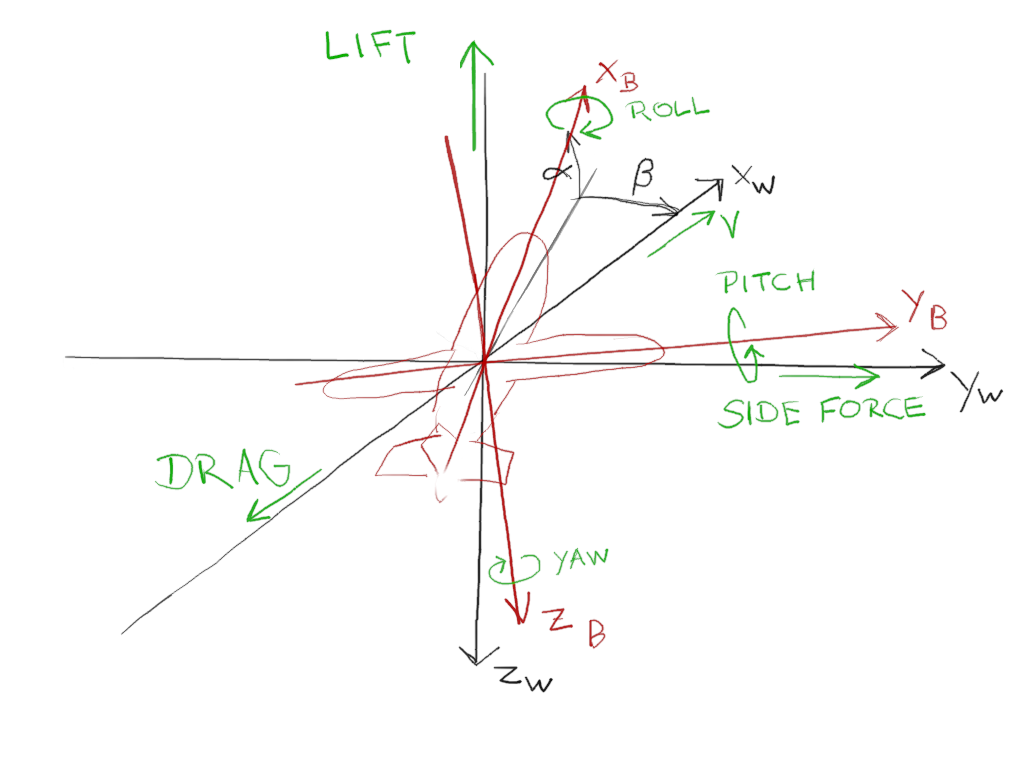 LIFT
X_B
ROLL
α
β
X_W
V
PITCH
Y_B
Y_W
SIDE FORCE
DRAG
YAW
Z_B
Z_W